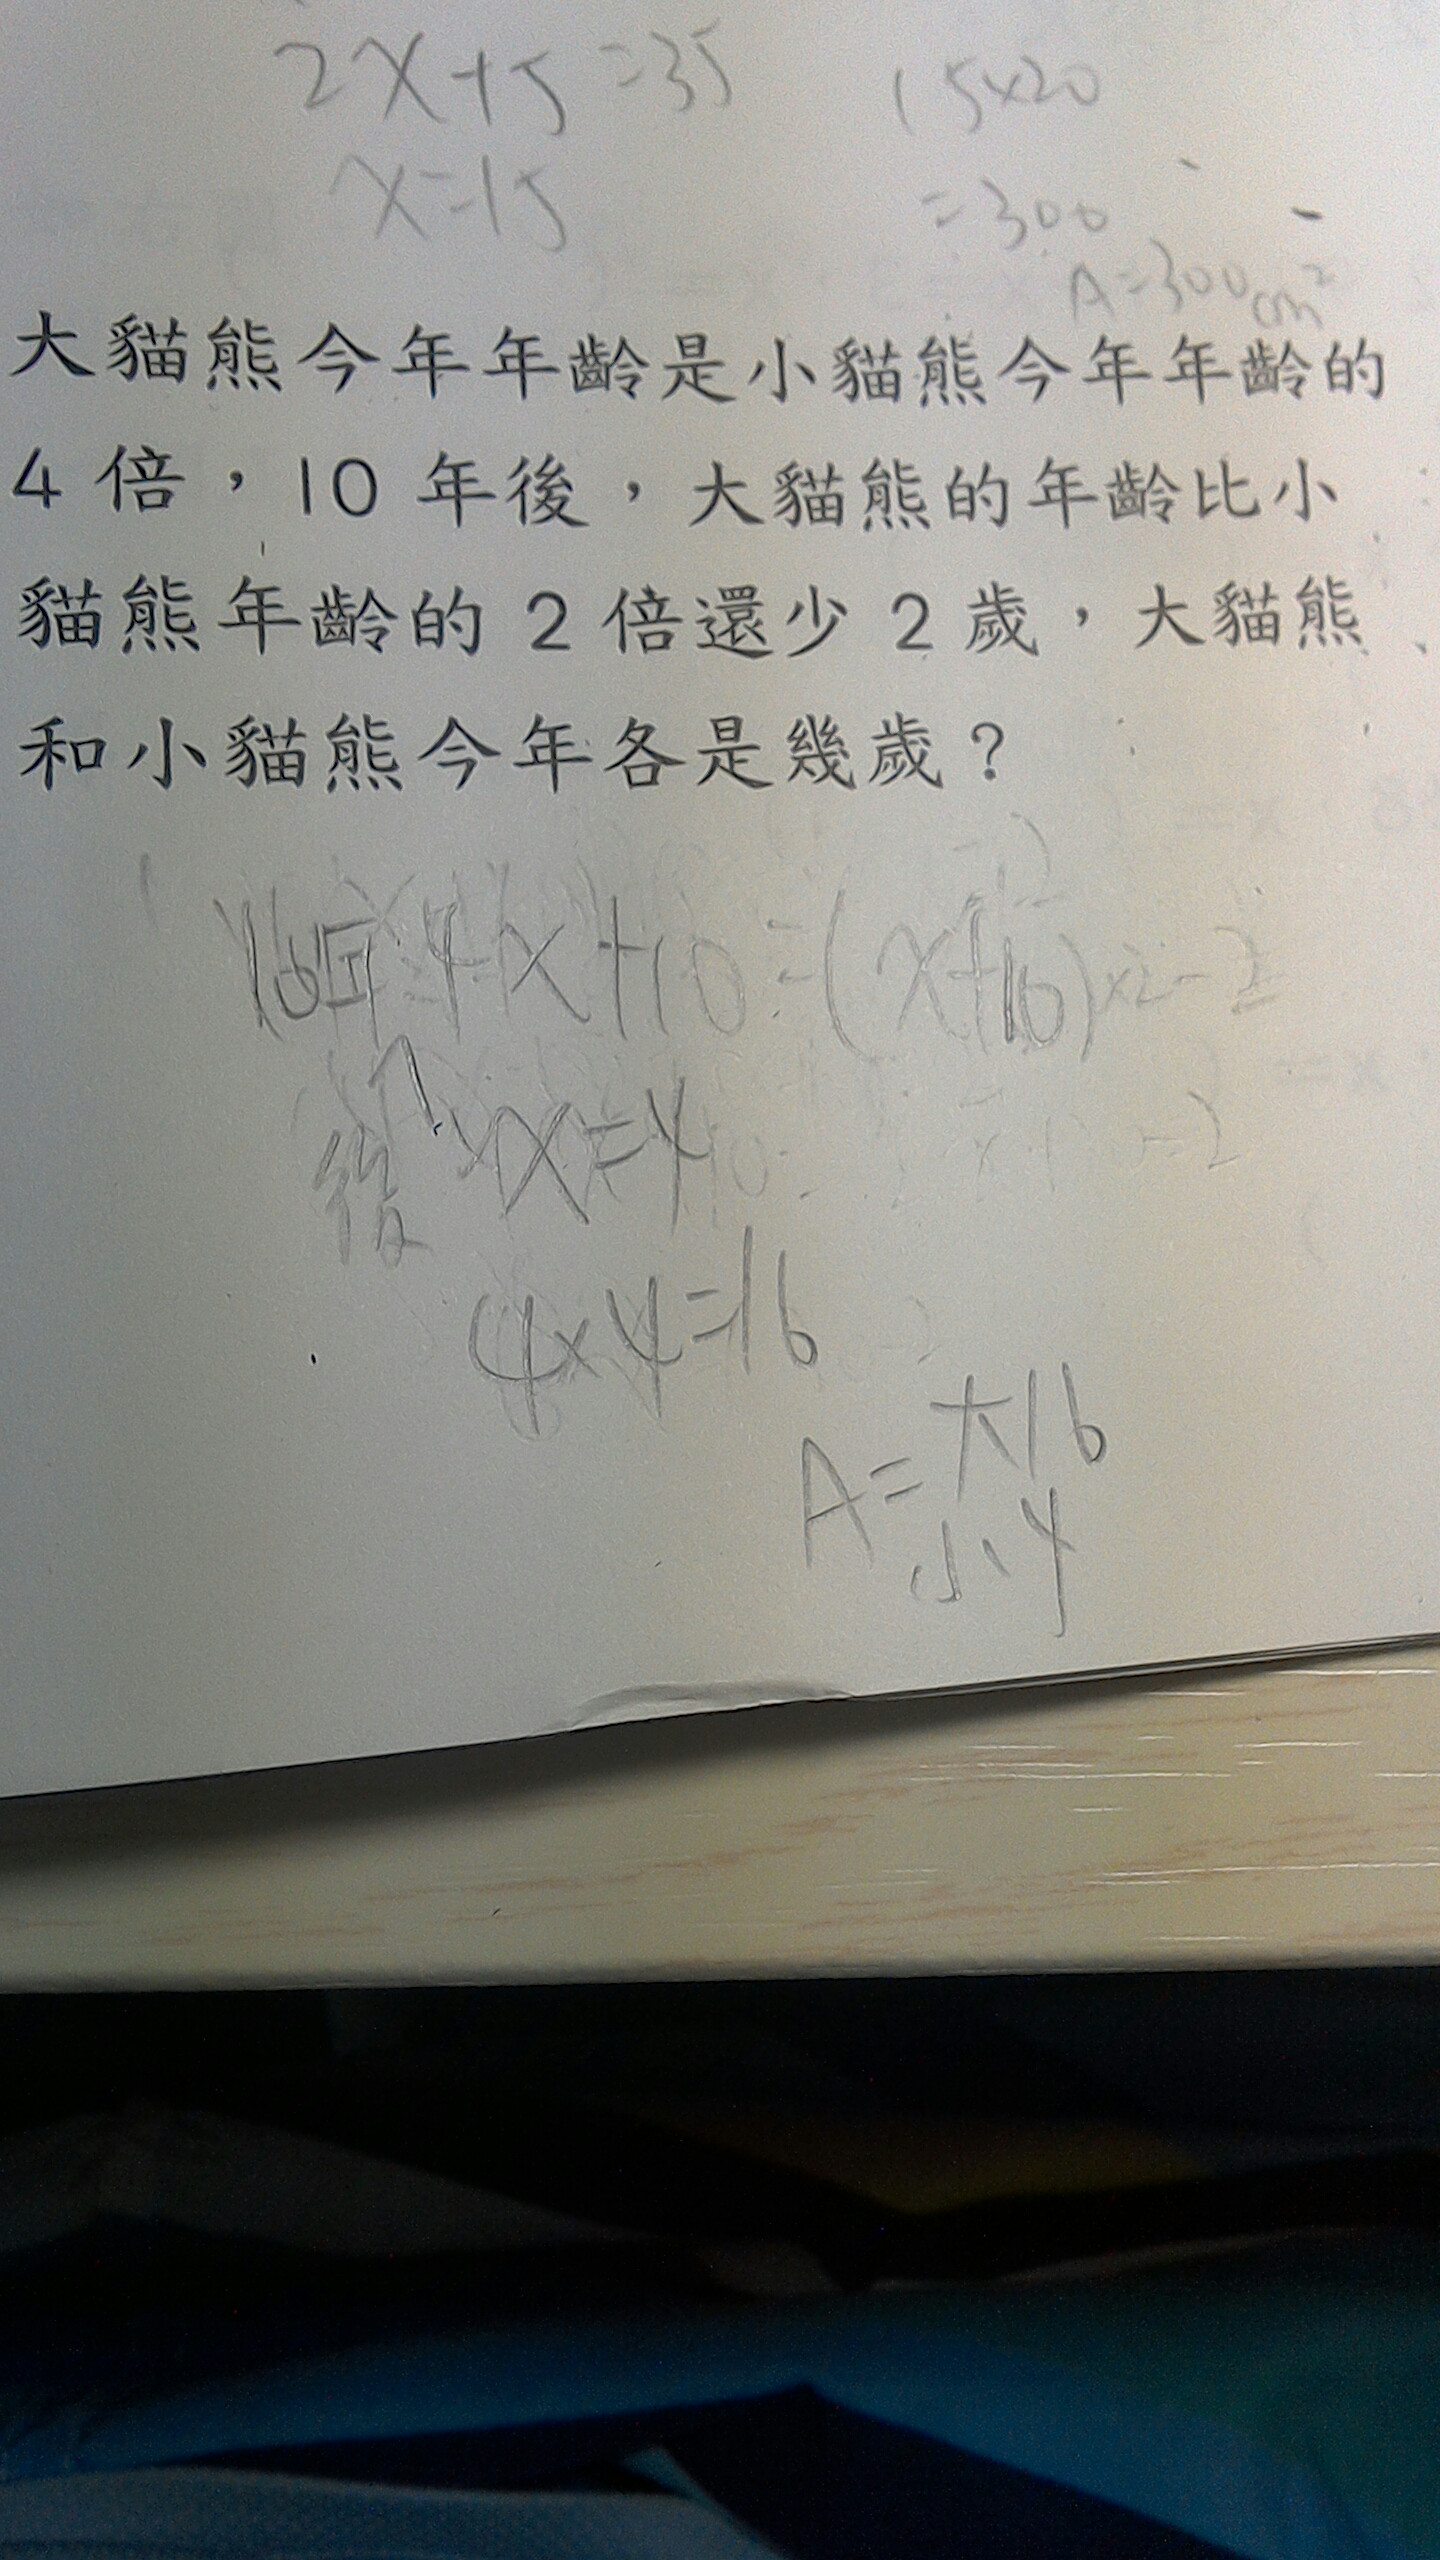 2x+5=35 15×20
x=15 =300
A=300cm²
大貓熊今年年齡是小貓熊今年年齡的
4 倍，10 年後，大貓熊的年齡比小
貓熊年齡的 2 倍還少 2 歲，大貓熊
和小貓熊今年各是幾歲？
4x+10=(x+10)×2-2
後 x=4
4×4=16
A=大16
小4